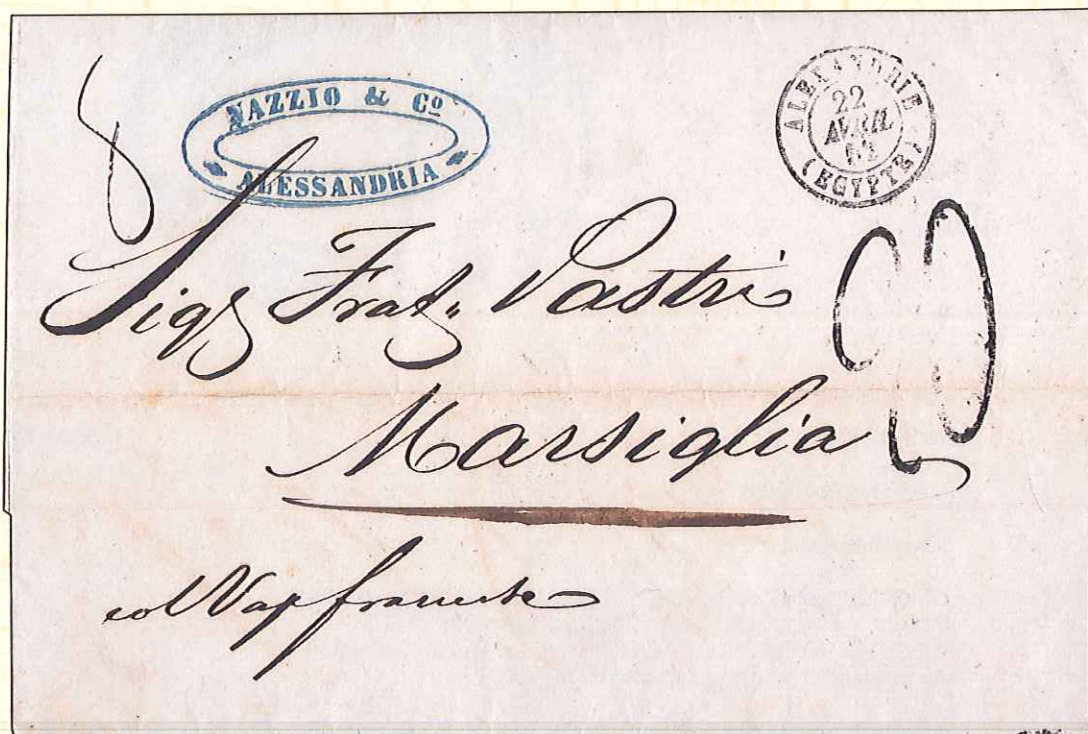 NAZZIO & Cº
ALESSANDRIA
ALEXANDRIE
22
AVRIL
52
(EGYPTE)
Sigʳ Frat. Pastri
Marsiglia
col Vap francese